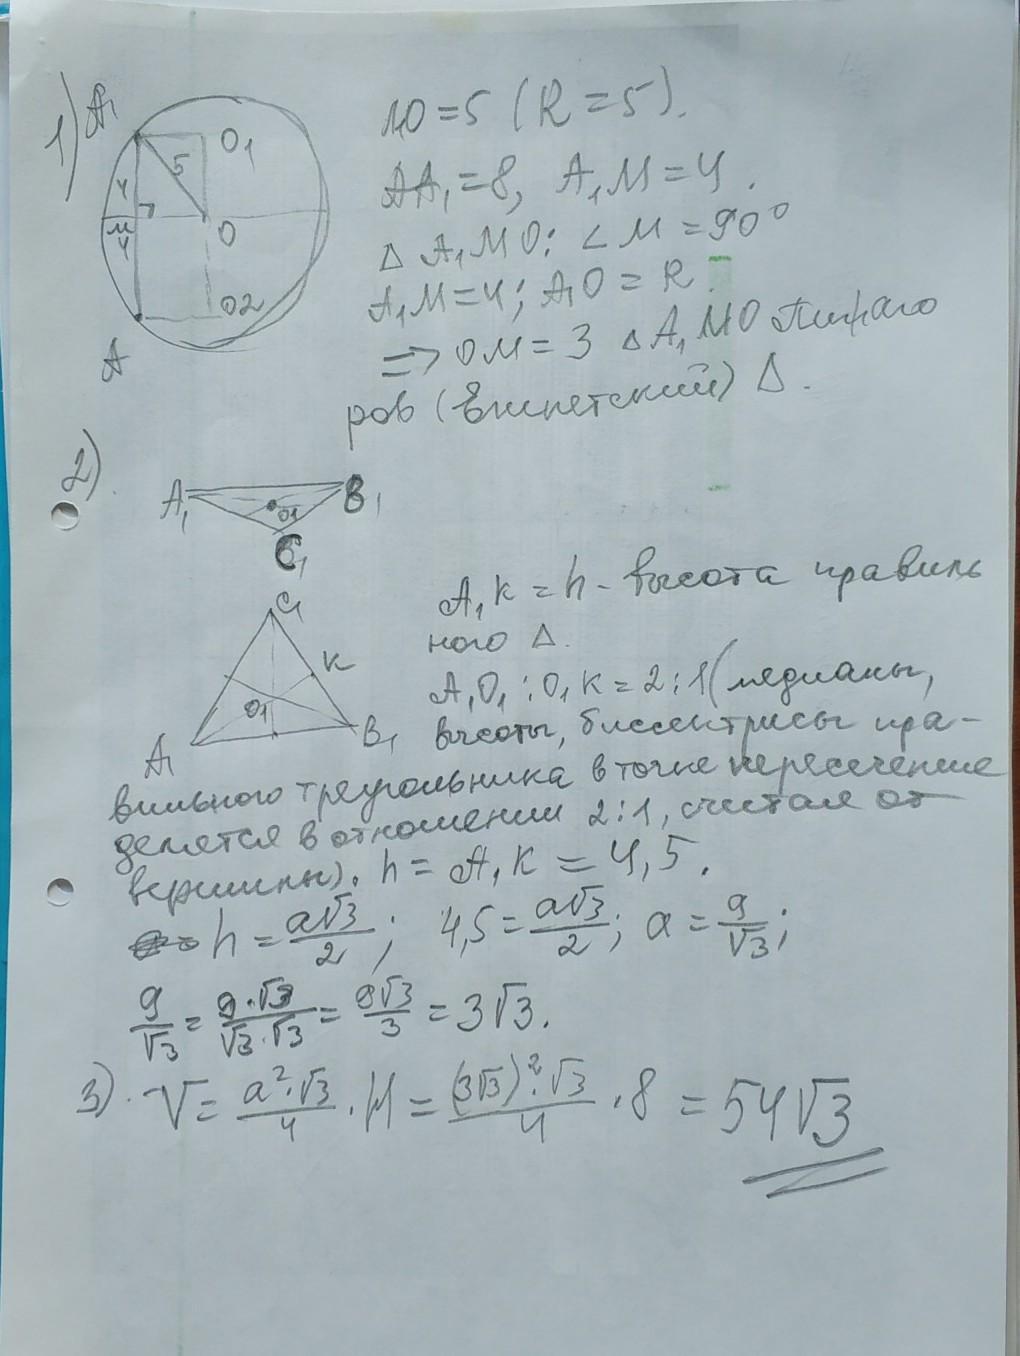 1) A₁ O₁ 5 4 M 4 O O2 A
AO = 5 (R = 5).
AA₁ = 8, A₁M = 4.
Δ A₁MO: ∠M = 90°
A₁M = 4; A₁O = R
=> OM = 3 Δ A₁MO Пифаго
ров (Египетский) Δ.
2) A₁ B₁ O1 C₁
C₁ K O1 A₁ B₁
A₁K = h - высота правиль
ного Δ.
A₁O₁ : O₁K = 2 : 1 (медианы,
высоты, биссектрисы пра-
вильного треугольника в точке пересечение
делятся в отношении 2:1, считая от
вершины). h = A₁K = 4,5.
h = a√3/2; 4,5 = a√3/2; a = 9/√3;
9/√3 = 9·√3/√3·√3 = 9√3/3 = 3√3.
3) V = a²·√3/4 · H = (3√3)²·√3/4 · 8 = 54√3